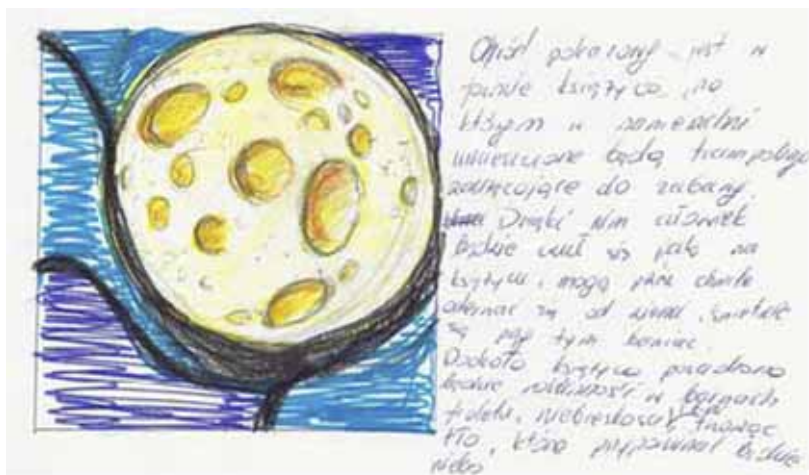 pokazany jest w
formie księżyca, na
którym w zamierzeniu
umieszczone będą trampoliny
zachęcające do zabawy.
Dzięki nim człowiek
będzie czuł się jak na
księżycu, mogąc przez chwilę
oderwać się od ziemi,
się przy tym bawiąc.
Dookoła księżyca posadzona
będzie roślinność w barwach
fioletu, tworząc
tło, które przypominać będzie
niebo